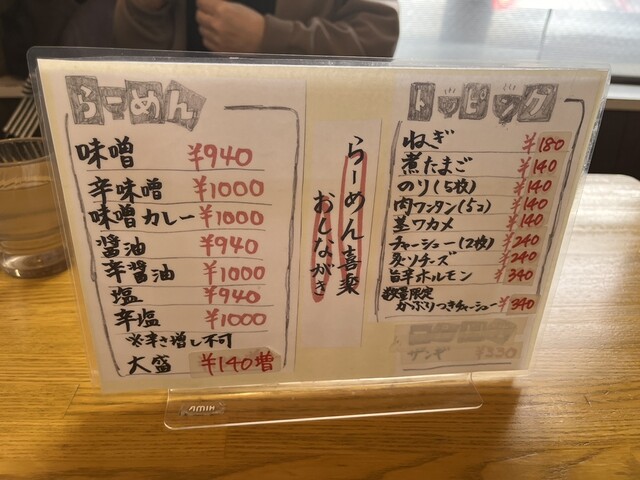 らーめん
味噌 ¥940
辛味噌 ¥1000
味噌カレー ¥1000
醬油 ¥940
辛醬油 ¥1000
塩 ¥940
辛塩 ¥1000
※辛さ増し不可
大盛 ¥140増
らーめん喜楽
おしながき
トッピング
ねぎ ¥180
煮たまご ¥140
のり(5枚) ¥140
肉ワンタン(5コ) ¥140
茎ワカメ ¥140
チャーシュー(2枚) ¥240
炙りチーズ ¥240
旨辛ホルモン ¥340
数量限定
かぶりつきチャーシュー ¥340
ザンギ ¥330
AMIH